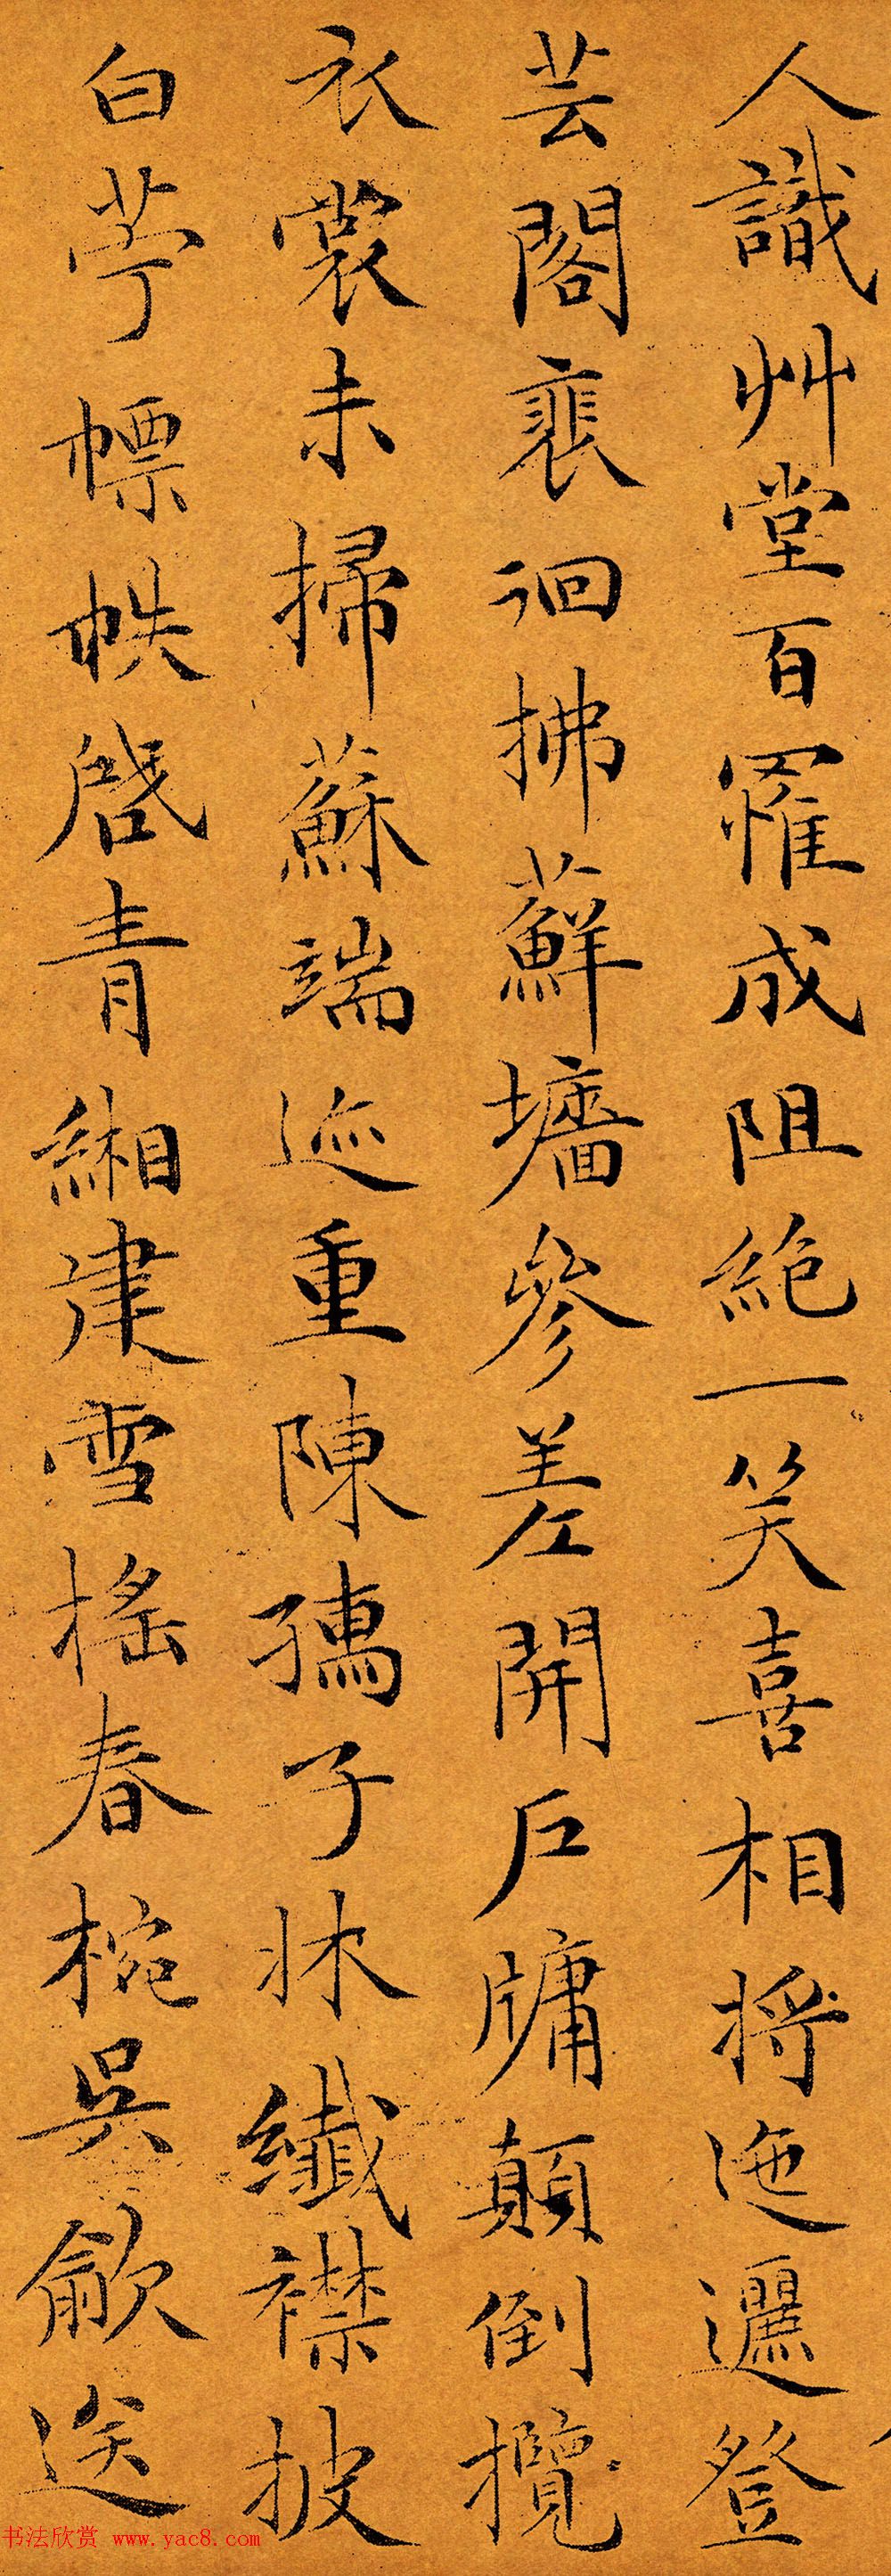 人識艸堂百罹成阻絶一笑喜相将迤邐登
芸閣裵徊拂蘚墻參差開戶牖顛倒攬
衣裳未掃蘇端迹重陳孺子牀纖襟披
白苧幖帙啓青緗建雪搖春椀吳歈送
书法欣赏 www.yac8.com